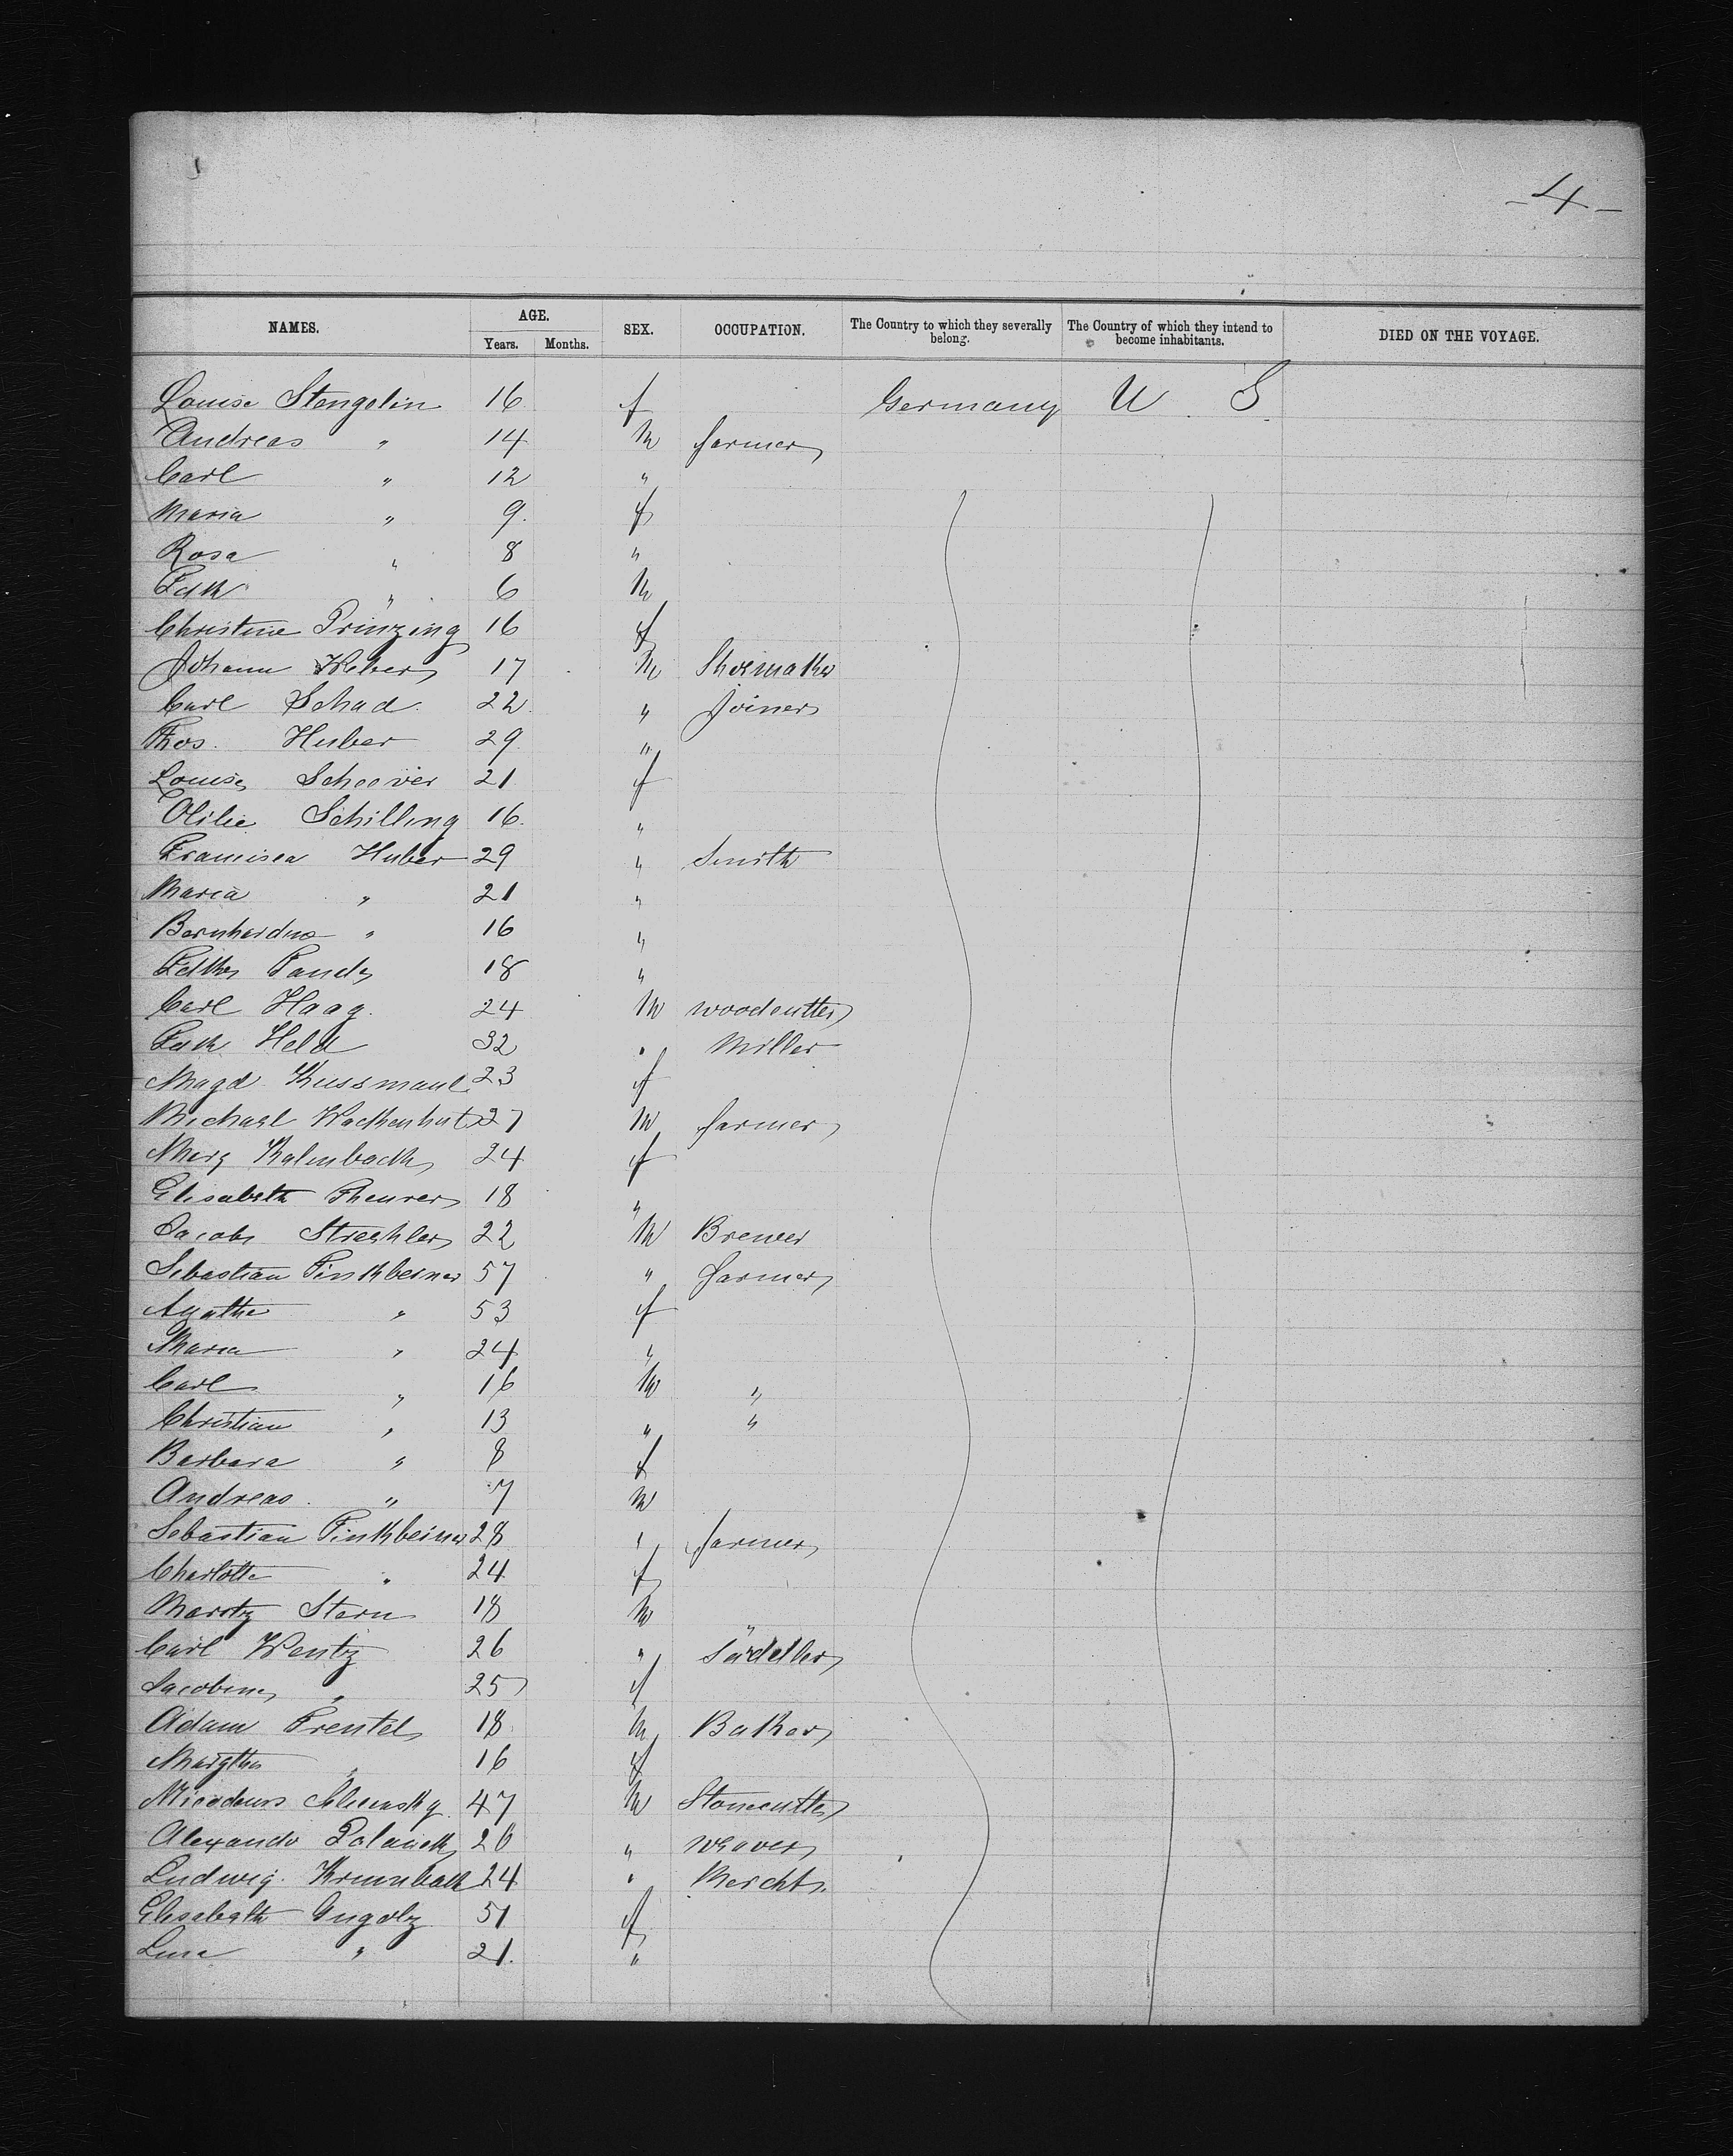 -4-
NAMES. AGE. SEX. OCCUPATION. The Country to which they severally belong. The Country of which they intend to become inhabitants. DIED ON THE VOYAGE.
Years. Months.
Louise Stengelin 16 f Germany U. S.
Andreas " 14 m farmer
Carl " 12 "
Maria " 9 f
Rosa " 8 "
" 6 m
Christine Prinzing 16 f
Johann Weber 17 m Shoemaker
Carl Schad 22 " Joiner
Huber 29 "
Louise 21 f
Schilling 16 "
Francisca Huber 29 " Smith
Maria " 21 "
" 16 "
18 "
Carl Haag 24 m woodcutter
Held 32 " Miller
Magd Kussmaul 23 f
Michael Wackenhut 27 m farmer
Kalmbach 24 f
Elisabeth Theurer 18 "
Jacob 22 m Brewer
Sebastian Finkbeiner 57 " farmer
Agathe " 53 f
Maria " 24 "
Carl " 16 m "
Christian " 13 " "
Barbara " 8 f
Andreas " 7 m
Sebastian Finkbeiner 28 " farmer
Charlotte " 24 f
Moritz Stern 18 m
Carl Wentz 26 "
Jacobine " 25 f
Adam 18 m Baker
" 16 f
47 m Stonecutter
26 " weaver
Ludwig 24 " Mercht.
Elisabeth 51 f
" 21 "